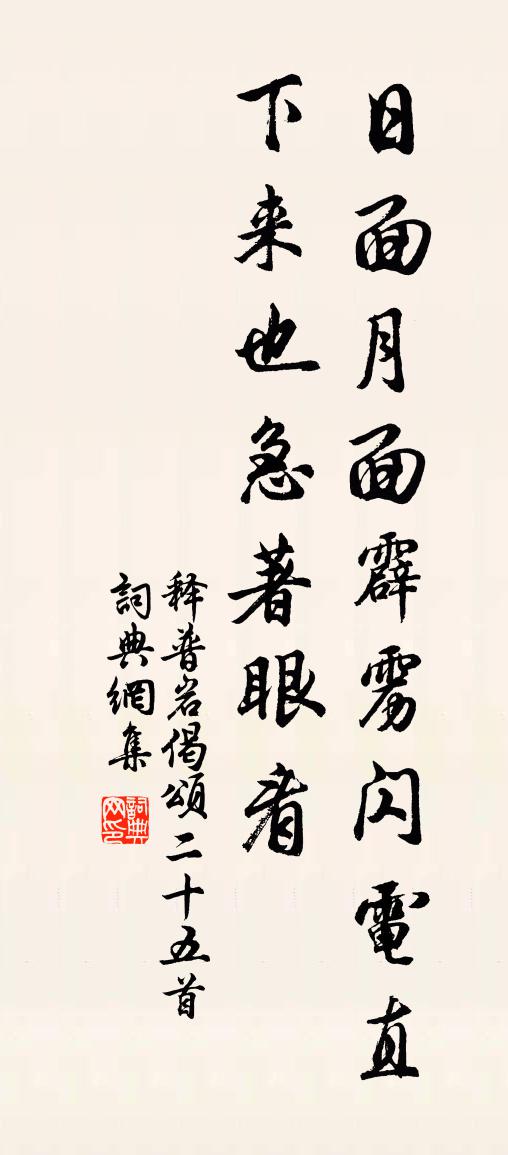 日面月面霹雳闪電直
下来也急著眼看
释普岩偈頌二十五首
詞典網集
詞典
网印